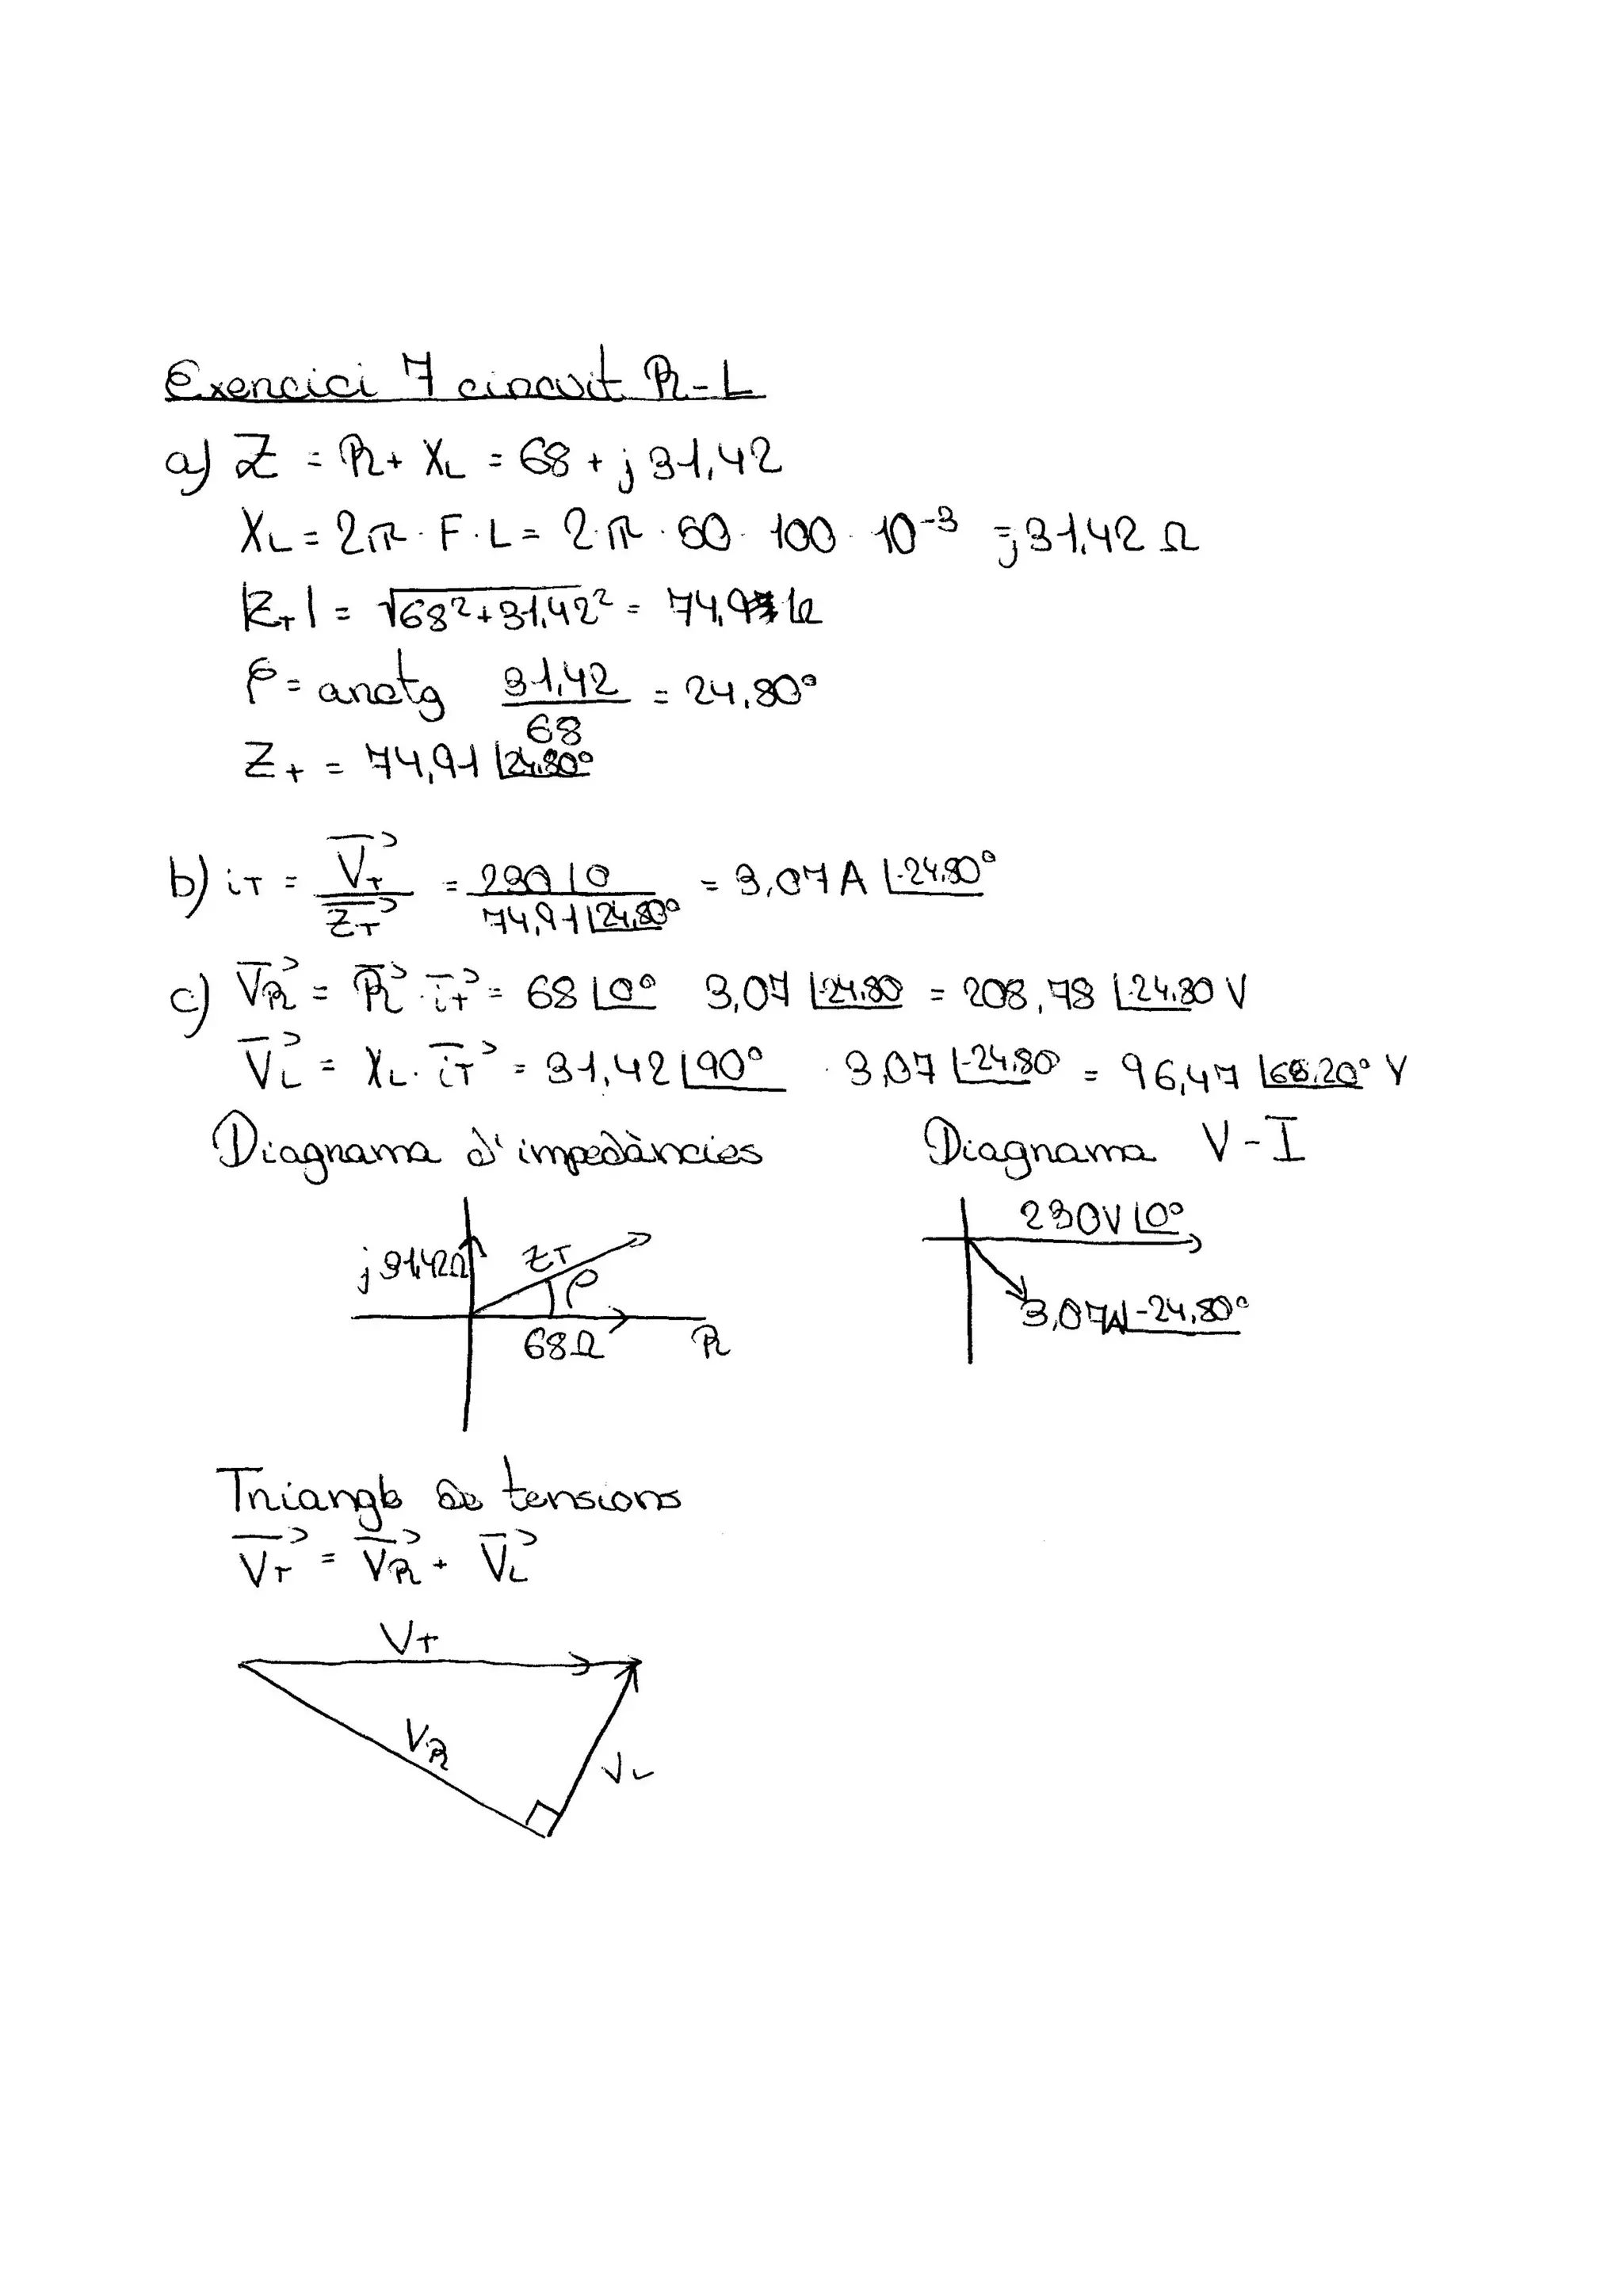 Exercici 7 circuit R-L
a) Z = R + XL = 68 + j 31,42
XL = 2π · F · L = 2 · π · 50 · 100 · 10⁻³ = j31,42 Ω
|ZT| = √68² + 31,42² = 74,91 Ω
φ = arctg 31,42 / 68 = 24,80°
ZT = 74,91 ∠24,80°
b) iT = VT / ZT = 230 ∠0 / 74,91 ∠24,80° = 3,07 A ∠-24,80°
c) VR = R · iT = 68 ∠0° 3,07 ∠-24,80 = 208,78 ∠-24,80 V
VL = XL · iT = 31,42 ∠90° · 3,07 ∠-24,80 = 96,47 ∠65,20° V
Diagrama d'impedàncies Diagrama V-I
230V ∠0°
j 31,42Ω ZT φ
3,07A ∠-24,80°
68Ω R
Triangle de tensions
VT = VR + VL
VT
VR
VL